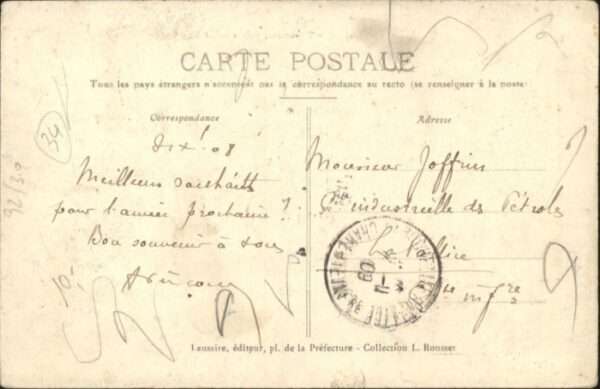 CARTE POSTALE
Tous les pays étrangers n'acceptent pas la correspondance au recto (se renseigner à la poste)
Correspondance
Adresse
34
92/30
Meilleurs souhaits
pour l'année prochaine !
Bon souvenir à tous
Monsieur Joffrin
Cie industrielle des Pétroles
09
Laussire, éditeur, pl. de la Préfecture - Collection L. Rousset